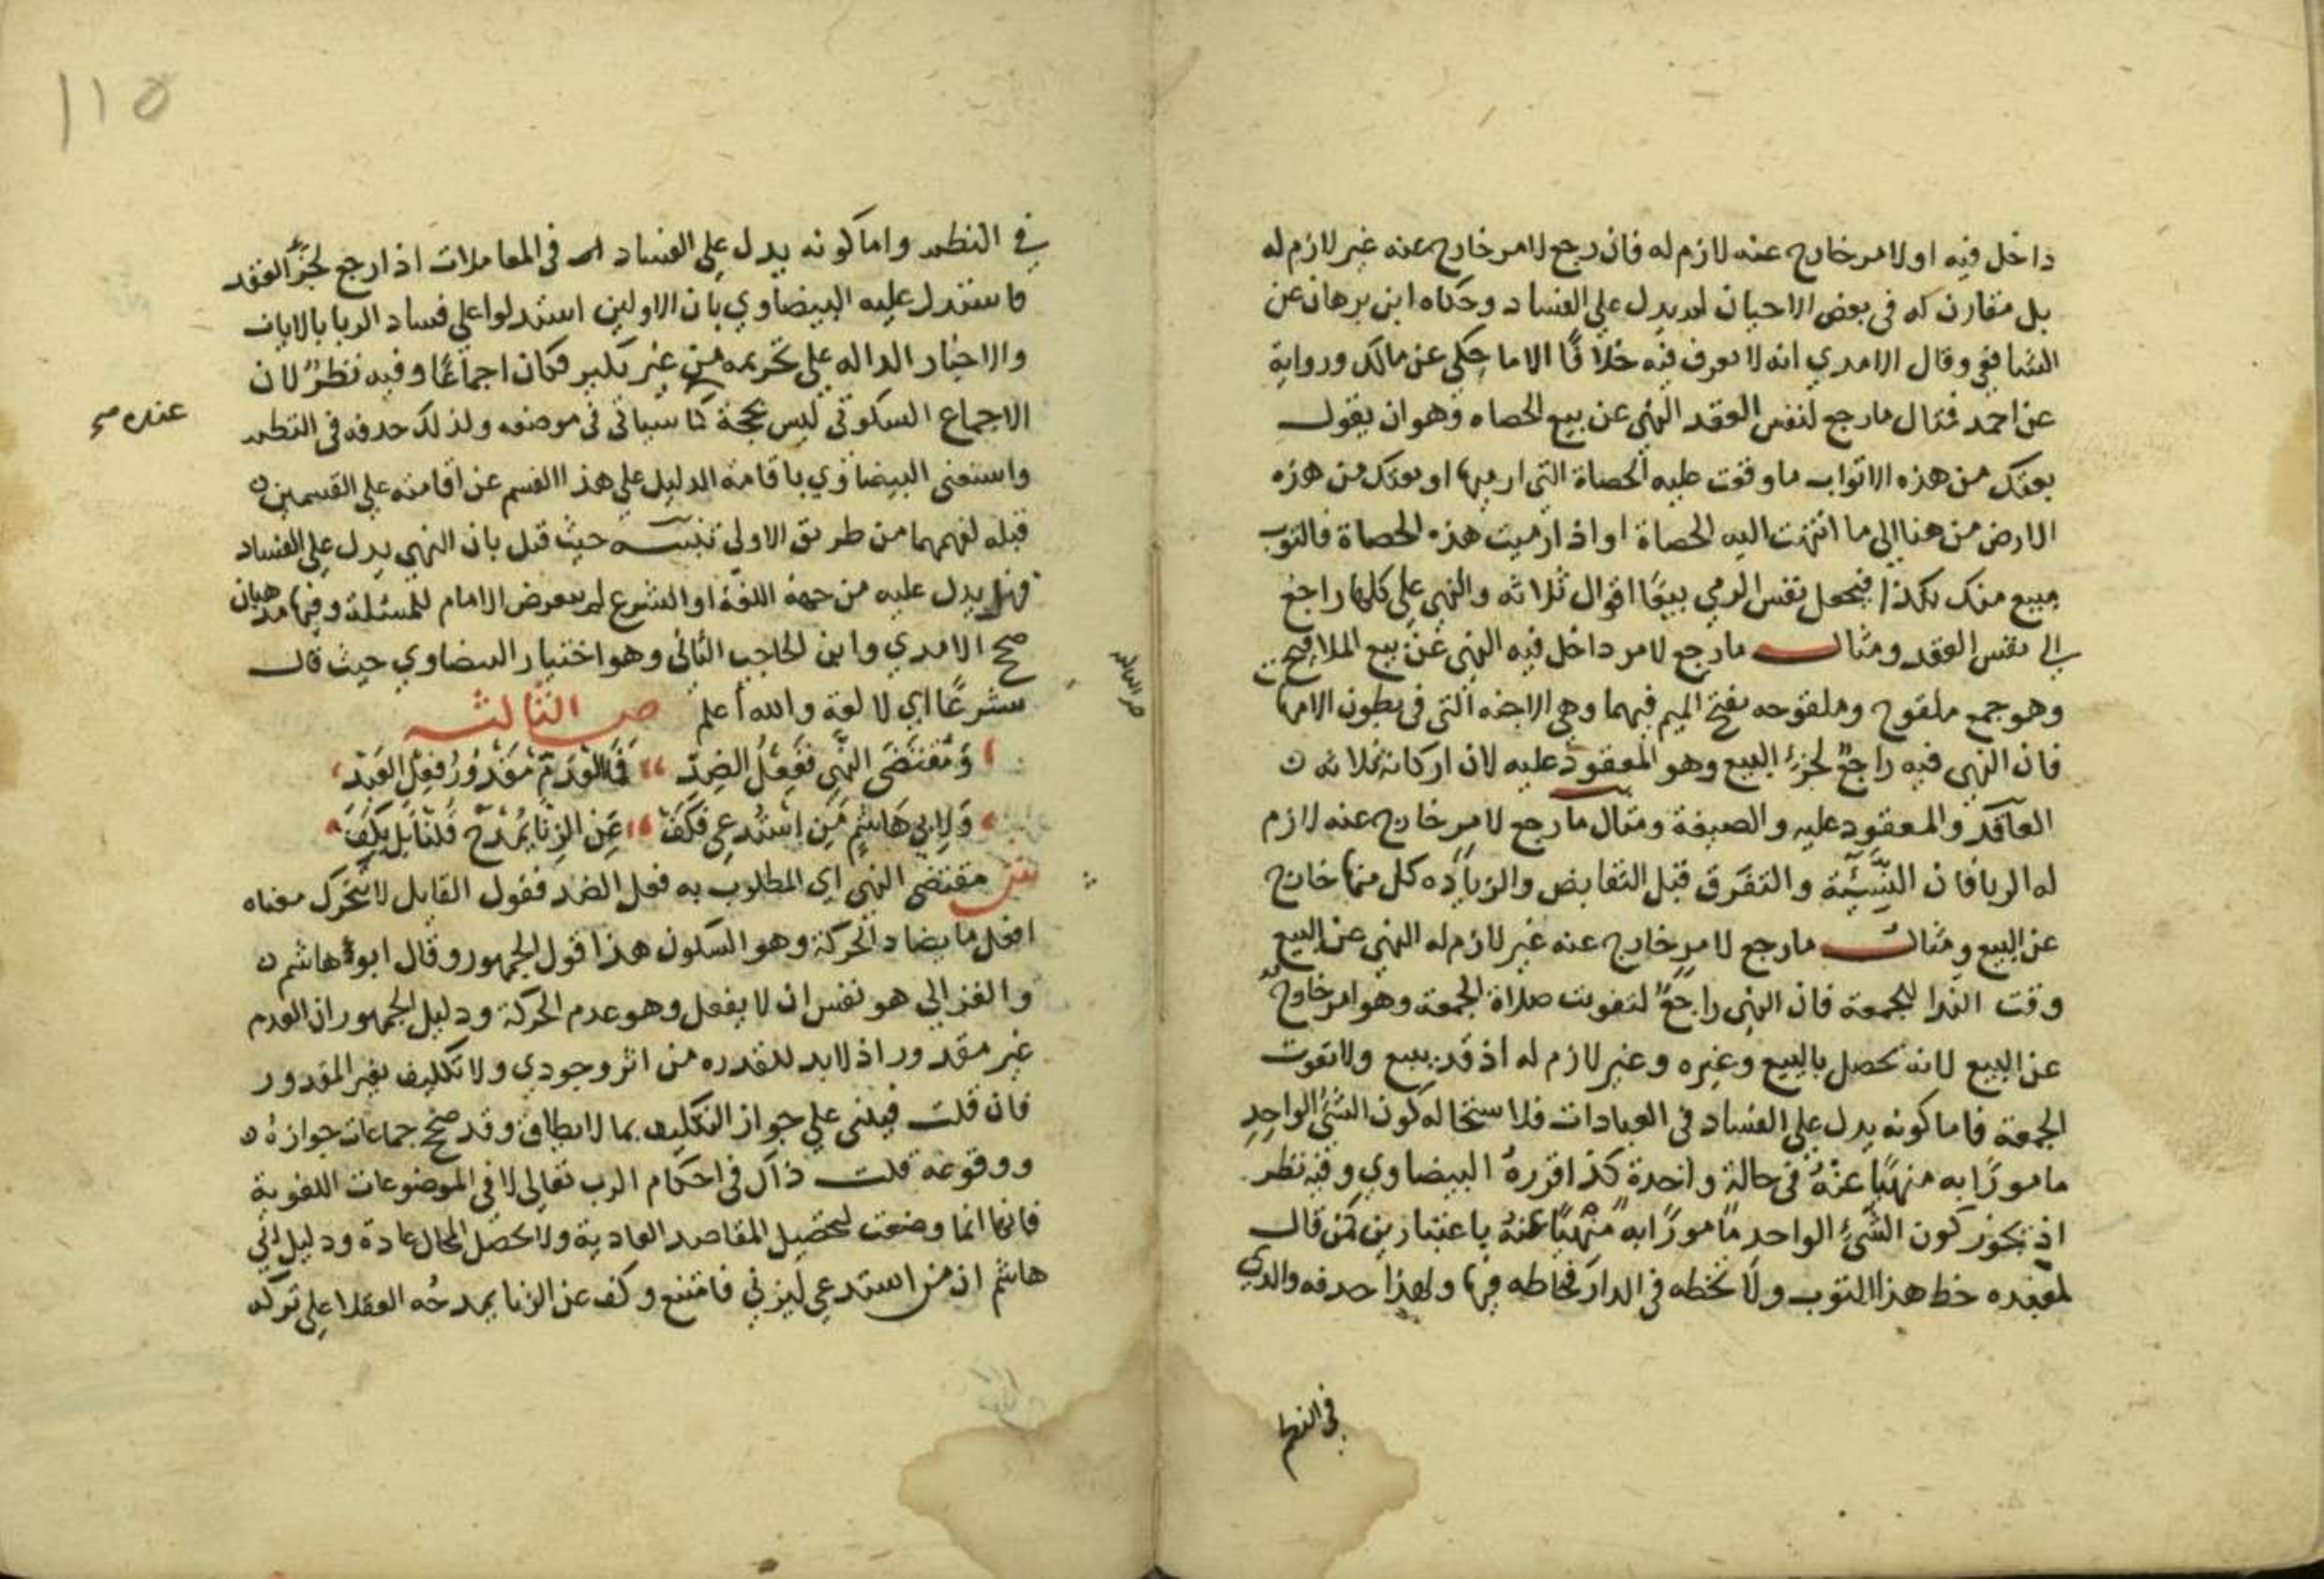 داخل فيه او لامر خارج عنه لازم له فان رجع لامر خارج عنه غير لازم له
بل مقارن له في بعض الاحيان لم يدل علي الفساد وحكاه ابن برهان عن
الشافعي وقال الامدي انه لا نعرف فيه خلافًا الا ما حكي عن مالك ورواية
عن احمد فمثال ما رجع لنفس العقد النهي عن بيع الحصاه وهو ان يقول
بعتك من هذه الاثواب ما وقعت عليه الحصاة التي ارميها او بعتك من هذه
الارض من هنا الي ما انتهت اليه الحصاة او اذا رميت هذه الحصاة فالثوب
مبيع منك بكذا فيجعل نفس الرمي بيعًا اقوال ثلاثه والنهي علي كلها راجع
الي نفس العقد ومثال ما رجع لامر داخل فيه النهي عن بيع الملاقيح
وهو جمع ملقوح وملقوحه بفتح الميم فيهما وهي الاجنه التي في بطون الامهات
فان النهي فيه راجعٌ لجزء البيع وهو المعقود عليه لان اركانه ثلاثه ن
العاقد والمعقود عليه والصيغة ومثال ما رجع لامر خارج عنه لازم
له الربا فان النَّسِيْئَة والتفَرق قبل التقابض والزيادَه كل منها خارج
عن البيع ومثال ما رجع لامر خارج عنه غير لازم له النهي عن البيع
وقت الندا للجمعة فان النهي راجعٌ لتفويت صلاة الجمعة وهو امر خارجٌ
عن البيع لانه يحصل بالبيع وغيره وغير لازم له اذ قد يبيع ولا تفوت
الجمعة فاما كونه يدل علي الفساد في العبادات فلاستحالة كون الشئ الواحِد
مامورًا به منهيًا عنْهُ في حالة واحدة كذا قررهُ البيضاوي وفيه نظر
اذ يجوز كون الشَّيْءِ الواحد مامورًا به منهْيًا عنهُ باعتبارين كمن قال
لعبده خط هذا الثوب ولا تخطه في الدار فخاطه فيها ولهذا حدفه والدي
في النظم
١١٥
في النظم واما كونه يدل علي الفساد في المعاملات اذا رجع لجزء العقد
فاستدل عليه البيضاوي بان الاولين استدلوا علي فساد الربا بالايات
والاخبار الداله علي تحريمه من غير نكير فكان اجماعًا وفيه نظرٌ لان
الاجماع السكوتي ليس بحجة كما سياتي في موضعه ولذلك حدفه في النظم
عنده صح
واستغني البيضاوي باقامة الدليل علي هذا القسم عن اقامته علي القسمين ن
قبله لفهمهما من طريق الاولي تنبيه حيث قيل بان النهي يدل علي الفساد
فهل يدل عليه من جهة اللغة او الشرع لم يتعرض الامام للمسئلة وفيها مدهبان
صحح الامدي وابن الحاجب الثاني وهو اختيار البيضاوي حيث قال
شرعًا اي لا لغة والله اعلم ص الثالثه
وَمُقْتَضَى النَّهْيِ فَفِعْلُ الضِدِّ فَالعَدَمْ مَقْدُوْرُ فِعْلِ العَبْدِ
وَلِابِيْ هَاشِمٍ مَنِ اسْتُدعِي فَكَفّ عَنِ الزِّنَا يُمْدَحْ قُلنَا بَل يَكُفّ
ش مقتضى النهي اي المطلوب به فعل الضد فقول القايل لا تتحرك معناه
افعل ما يضاد الحركة وهو السكون هذا قول الجمهور وقال ابو هاشم ن
والغزالي هو نفس ان لا يفعل وهو عدم الحركة ودليل الجمهور ان العدم
غير مقدور اذ لا بد للقدره من اثر وجودي ولا تكليف بغير المقدور
فان قلت فيبني علي جواز التكليف بما لا يطاق وقد صحح جماعات جوازه ن
ووقوعه قلت ذاك في احكام الرب تعالي لا في الموضوعات اللغوية
فانها انما وضعت لتحصيل المقاصد العادية ولا يحصل المحال عادة ودليل ابي
هاشم ان من استدعي ليزني فامتنع وكف عن الزنا يمدحُه العقلا علي تركه